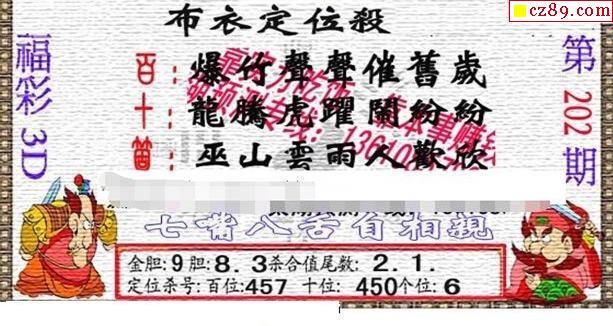 cz89.com
布衣定位殺
福彩3D
第202期
百：爆竹聲聲催舊歲
十：龍騰虎躍鬧紛紛
個：巫山雲雨人歡欣
七嘴八舌自相親
金胆:9胆:8.3杀合值尾数:2.1.
定位杀号:百位:457 十位:450个位:6